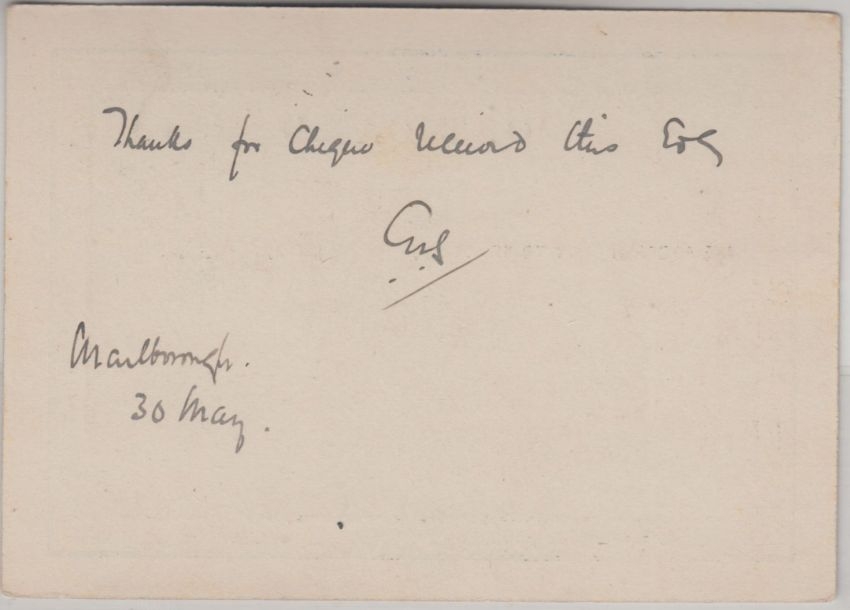 Thanks for Cheque received this
Marlborough.
30 May.